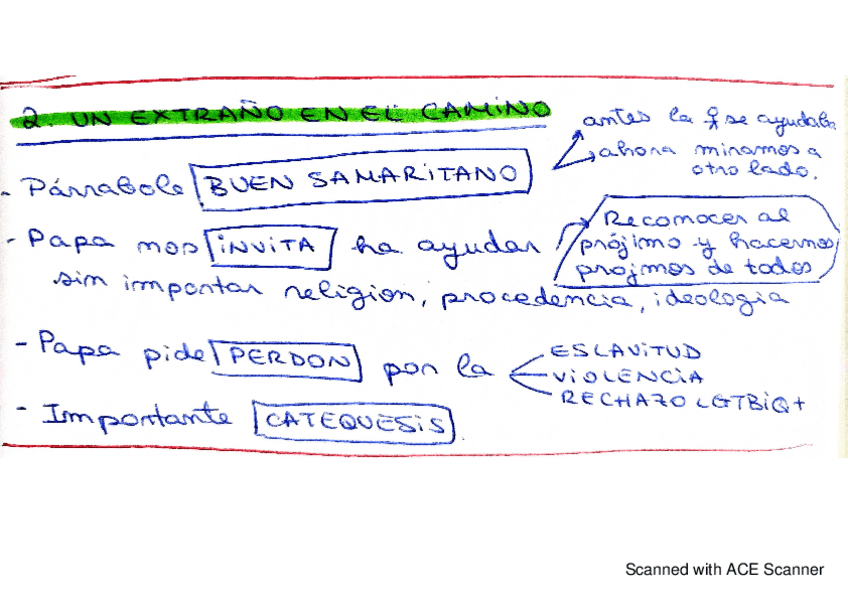 2. UN EXTRAÑO EN EL CAMINO
antes la se ayudaba
ahora miramos a
otro lado.
- Párrabola BUEN SAMARITANO
- Papa nos iNViTA ha ayudar
Reconocer al
prójimo y hacernos
projmos de todos
sin importar religion, procedencia, ideologia
- Papa pide PERDON por la
ESLAViTUD
ViOLENCiA
RECHAZO LGTBiQ+
- Importante CATEQUESiS
Scanned with ACE Scanner